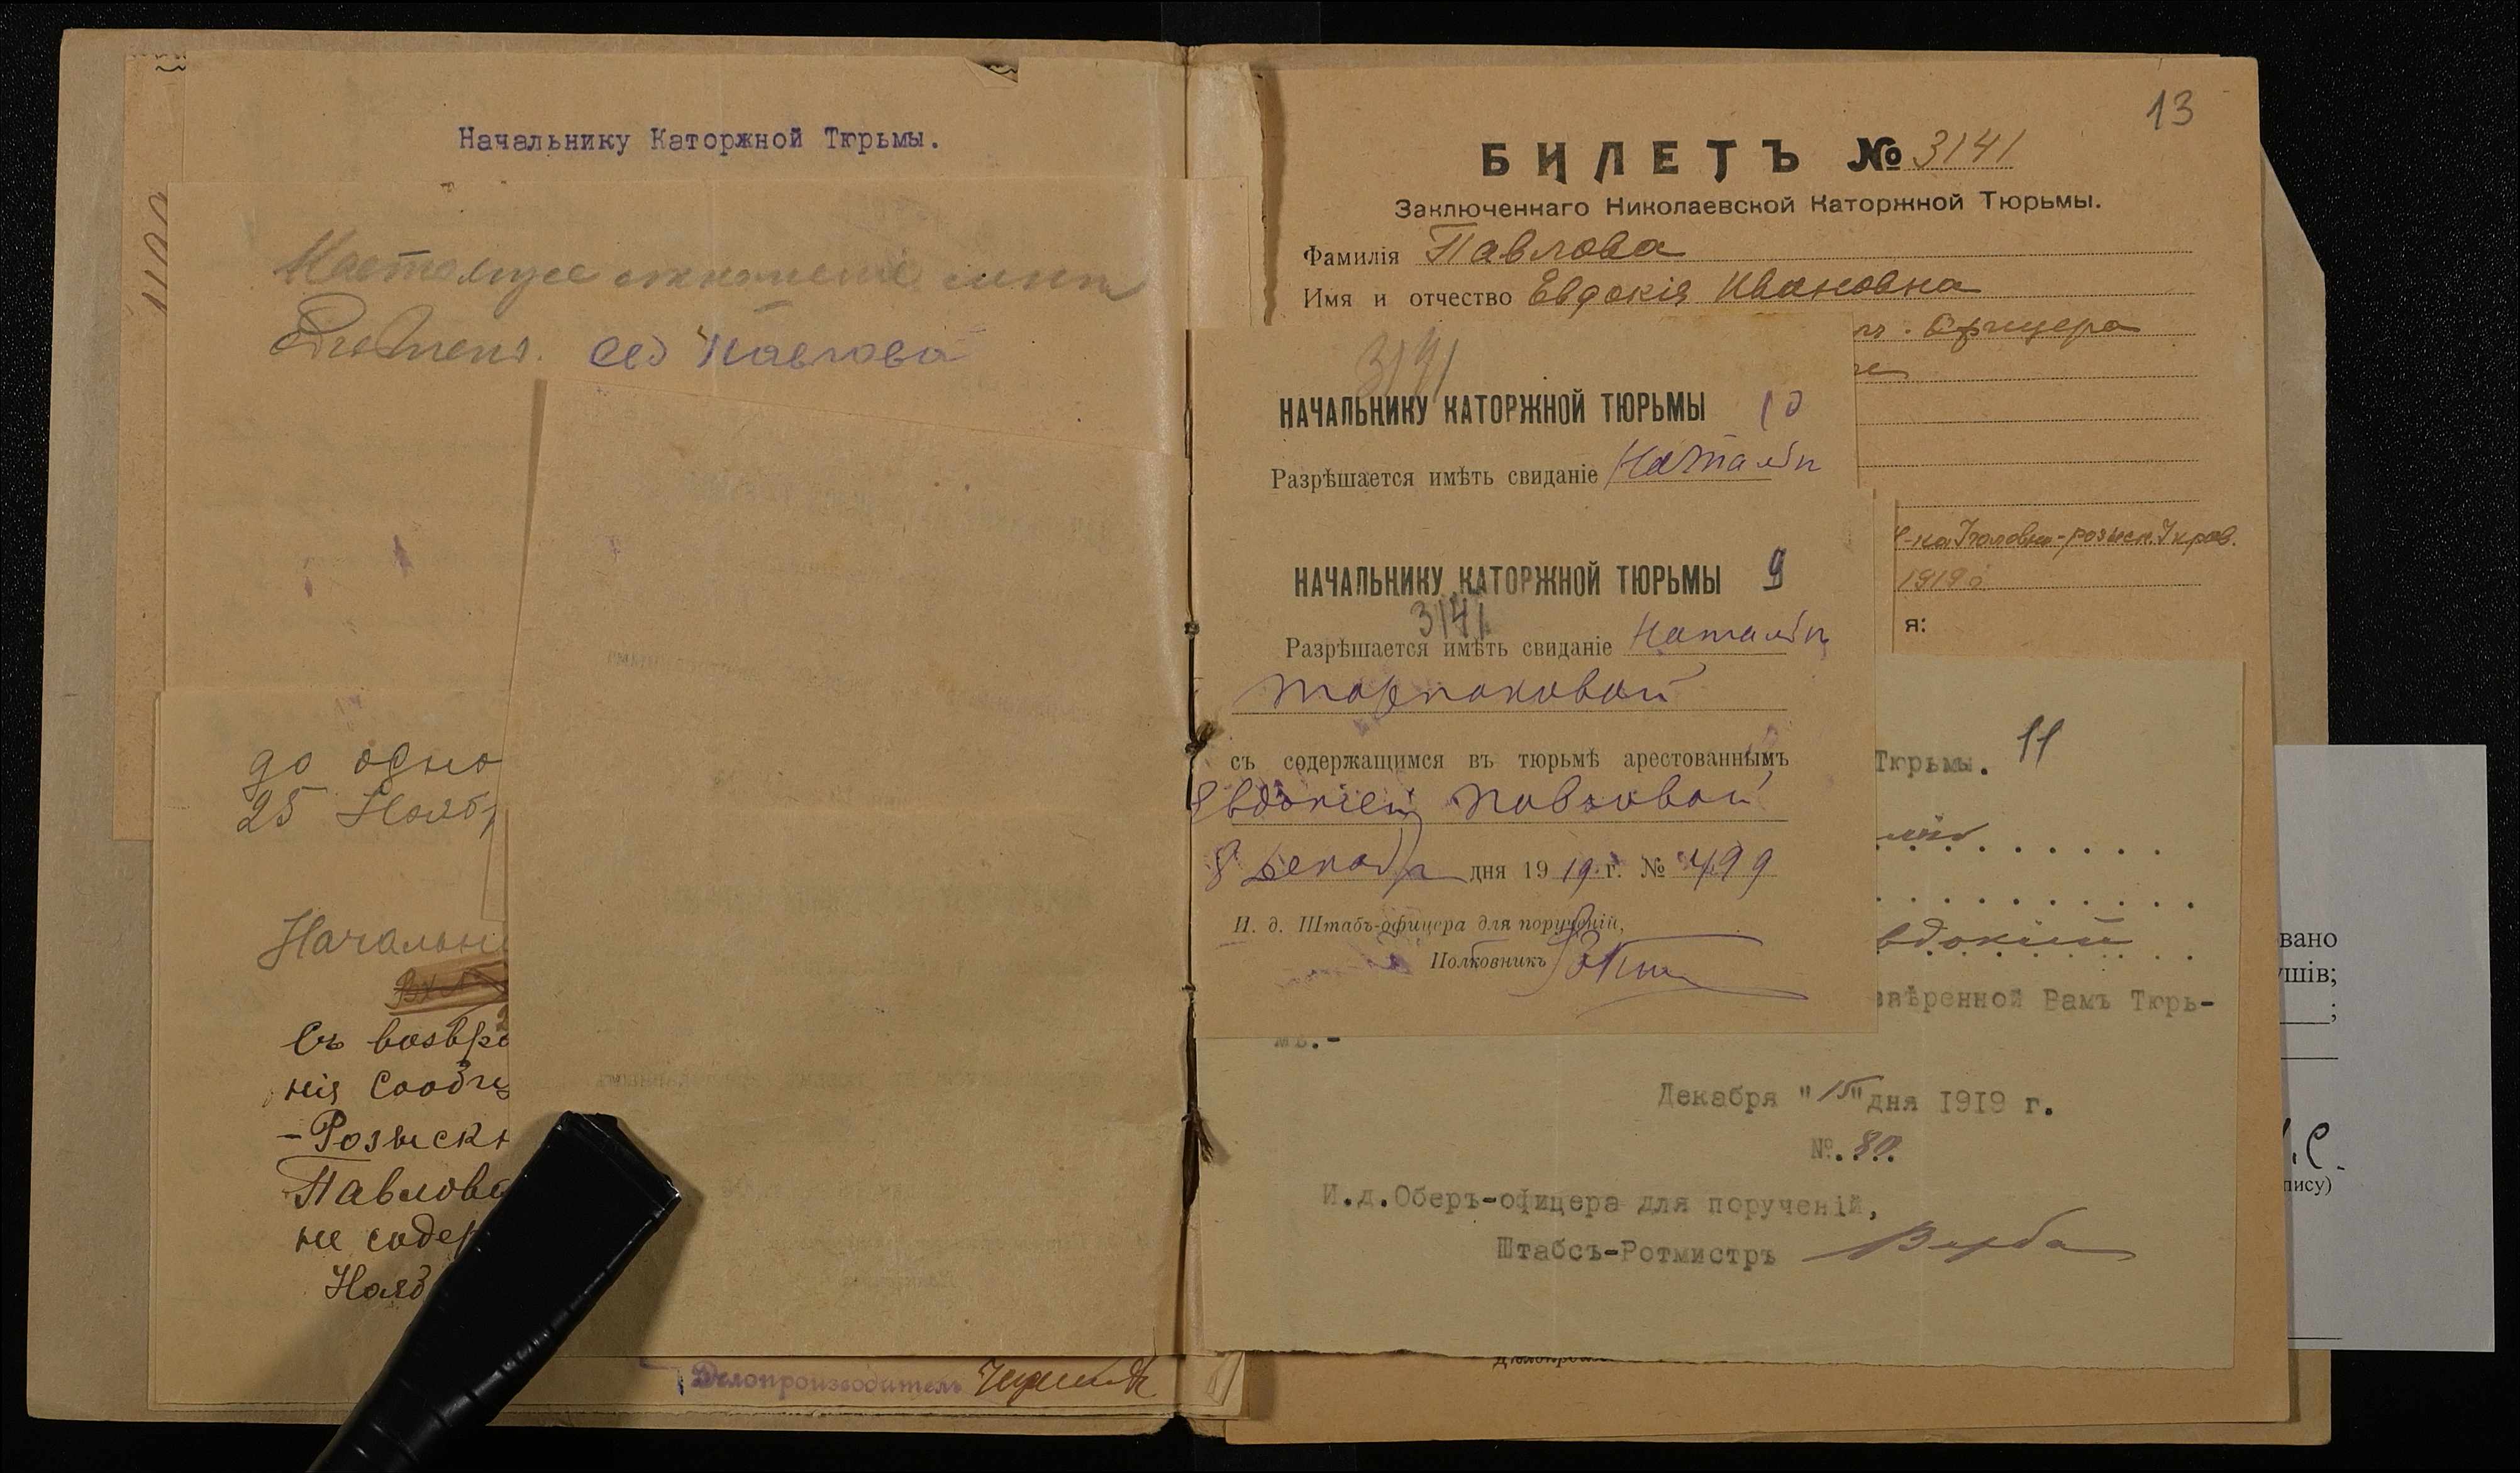 Начальнику Каторжной Тюрьмы.
Настоящее отношеніе мнѣ
Павлова
до одно
25 Нояб
Начальни
Съ возвра
нія сообщ
-Розыскн
Павлова
не содер
Нояб
Делопроизводитель
13
БИЛЕТЪ № 3141
Заключеннаго Николаевской Каторжной Тюрьмы.
Фамилія Павлова
Имя и отчество Евдокія Ивановна
Офицера
Уголовно-розыск. Управ.
1919 г.
я:
3141
НАЧАЛЬНИКУ КАТОРЖНОЙ ТЮРЬМЫ 10
Разрѣшается имѣть свиданіе Наталіи
НАЧАЛЬНИКУ КАТОРЖНОЙ ТЮРЬМЫ 9
3141
Разрѣшается имѣть свиданіе Наталіи
съ содержащимся въ тюрьмѣ арестованнымъ
Евдокіей Павловой
8 Декабр дня 1919 г. № 499
И. д. Штабъ-офицера для порученій,
Полковникъ
Тюрьмы. 11
вдокіей
ввѣренной Вамъ Тюрь-
мѣ.-
Декабря "15" дня 1919 г.
№. 80.
И.д.Оберъ-офицера для порученій,
Штабсъ-Ротмистръ Верба
вано
ушів;
;
пису)